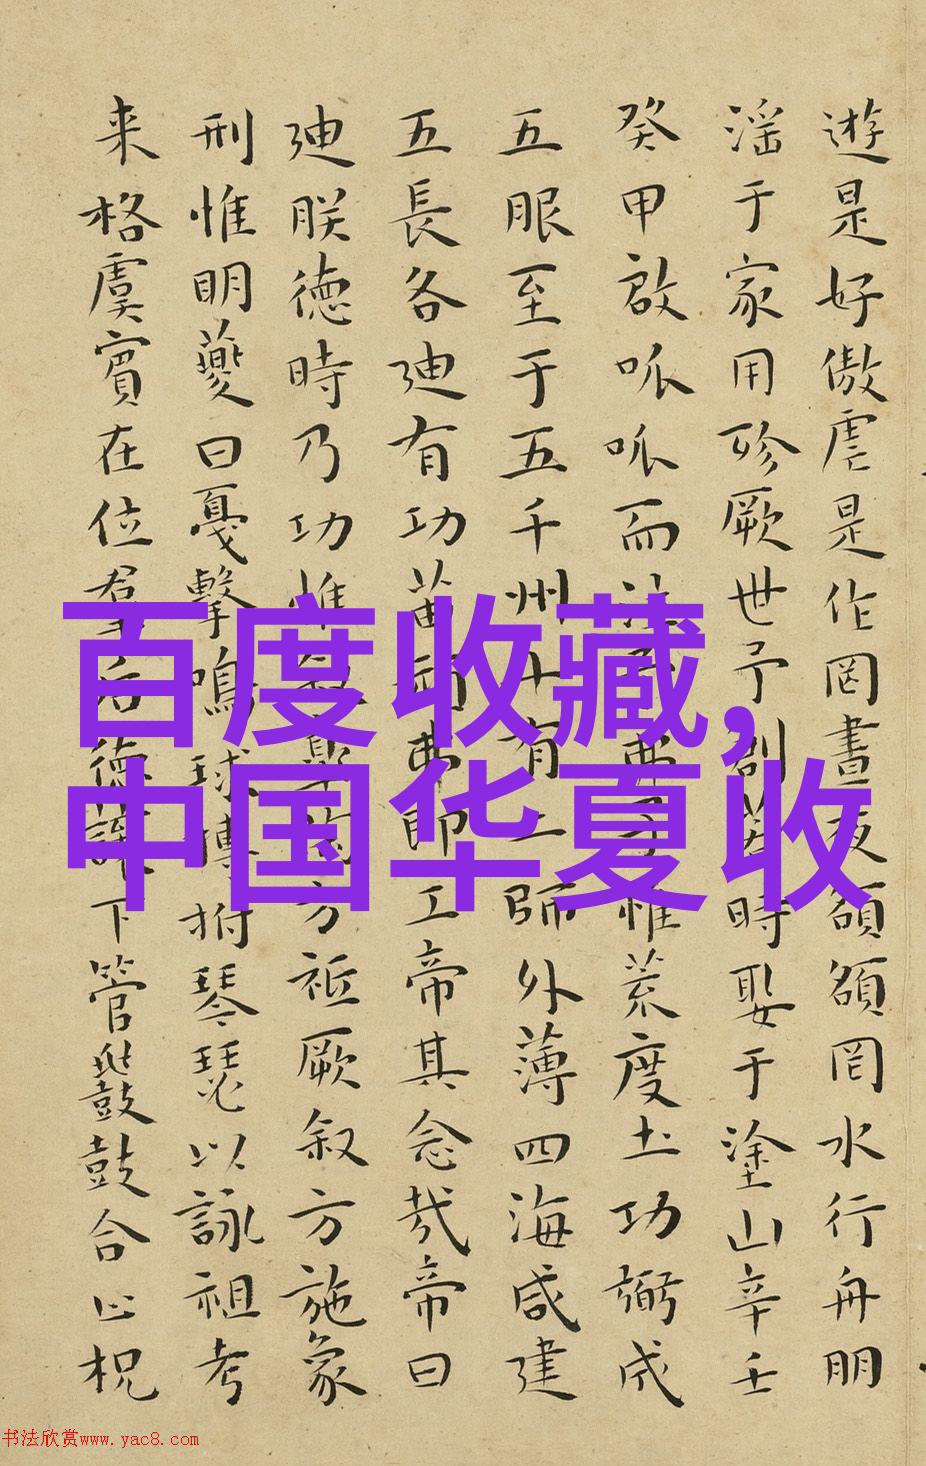 遊是好傲虐是作罔晝夜頟頟罔水行舟朋
淫于家用殄厥世予創若時娶于塗山辛壬
癸甲啟呱呱而泣予弗子惟荒度土功弼成
五服至于五千州十有二師外薄四海咸建
五長各迪有功苗頑弗即工帝其念哉帝曰
迪朕德時乃功惟叙臯陶方祗厥叙方施象
刑惟明夔曰戛擊鳴球搏拊琴瑟以詠祖考
来格虞賓在位羣后德讓下管鼗鼓合止柷
百度收藏,
中国华夏收
书法欣赏www.yac8.com